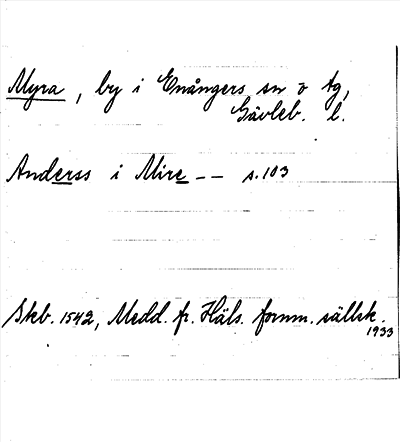 Myra, by i Enångers sn o tg,
Gävleb. l.
Anderss i Mire -- s. 103
Skb. 1542, Medd. fr. Häls. fornm. sällsk.
1933